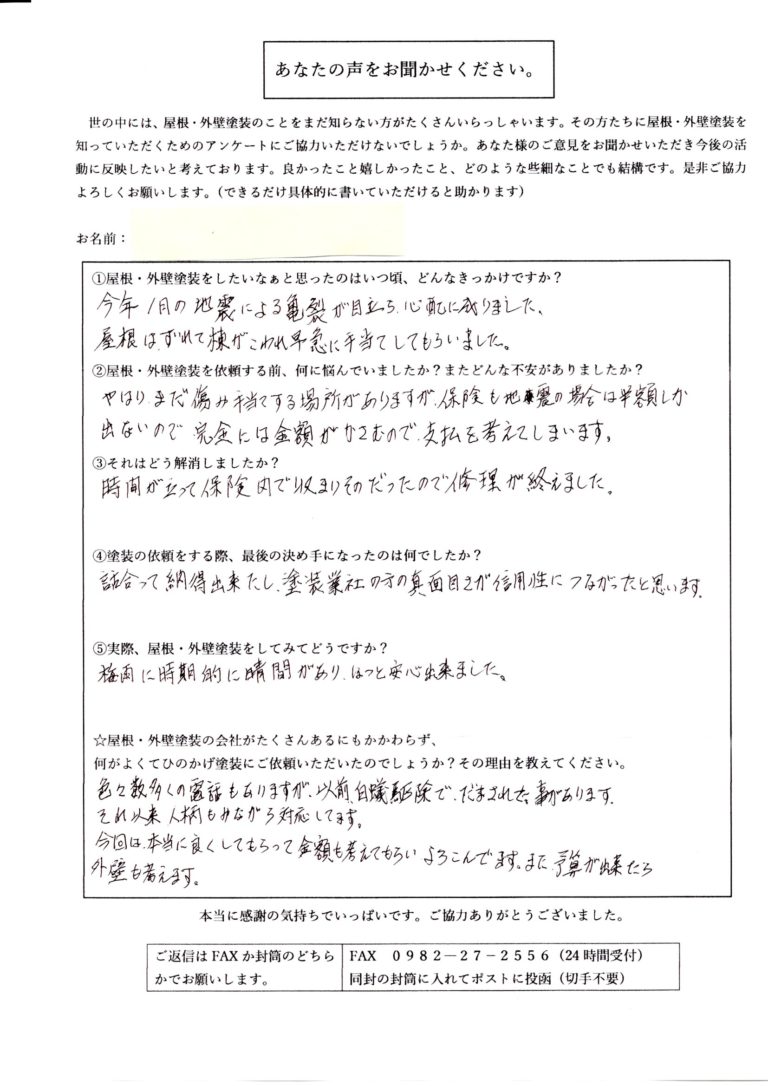 あなたの声をお聞かせください。
世の中には、屋根・外壁塗装のことをまだ知らない方がたくさんいらっしゃいます。その方たちに屋根・外壁塗装を
知っていただくためのアンケートにご協力いただけないでしょうか。あなた様のご意見をお聞かせいただき今後の活
動に反映したいと考えております。良かったこと嬉しかったこと、どのような些細なことでも結構です。是非ご協力
よろしくお願いします。（できるだけ具体的に書いていただけると助かります）
お名前：
①屋根・外壁塗装をしたいなぁと思ったのはいつ頃、どんなきっかけですか？
今年1月の地震による亀裂が目立ち、心配に成りました、
屋根は、ずれて棟がこわれ早急に手当てしてもらいました。
②屋根・外壁塗装を依頼する前、何に悩んでいましたか？またどんな不安がありましたか？
やはり、まだ傷み手当てする場所がありますが、保険も地震の場合は半額しか
出ないので完全には金額がかさむので、支払を考えてしまいます。
③それはどう解消しましたか？
時間が立って保険内で収まりそだったので修理が終えました。
④塗装の依頼をする際、最後の決め手になったのは何でしたか？
話合って納得出来たし、塗装業社の方の真面目さが信用性につながったと思います.
⑤実際、屋根・外壁塗装をしてみてどうですか？
梅雨に時期的に晴間があり、ほっと安心出来ました。
☆屋根・外壁塗装の会社がたくさんあるにもかかわらず、
何がよくてひのかげ塗装にご依頼いただいたのでしょうか？その理由を教えてください。
色々数多くの電話もありますが、以前、白蟻駆除で、だまされた事があります.
それ以来人柄もみながら対応してます。
今回は、本当に良くしてもらって金額も考えてもらいよろこんでます。また予算が出来たら
外壁も考えます。
本当に感謝の気持ちでいっぱいです。ご協力ありがとうございました。
ご返信はFAXか封筒のどちら
かでお願いします。
FAX　０９８２－２７－２５５６（24時間受付）
同封の封筒に入れてポストに投函（切手不要）